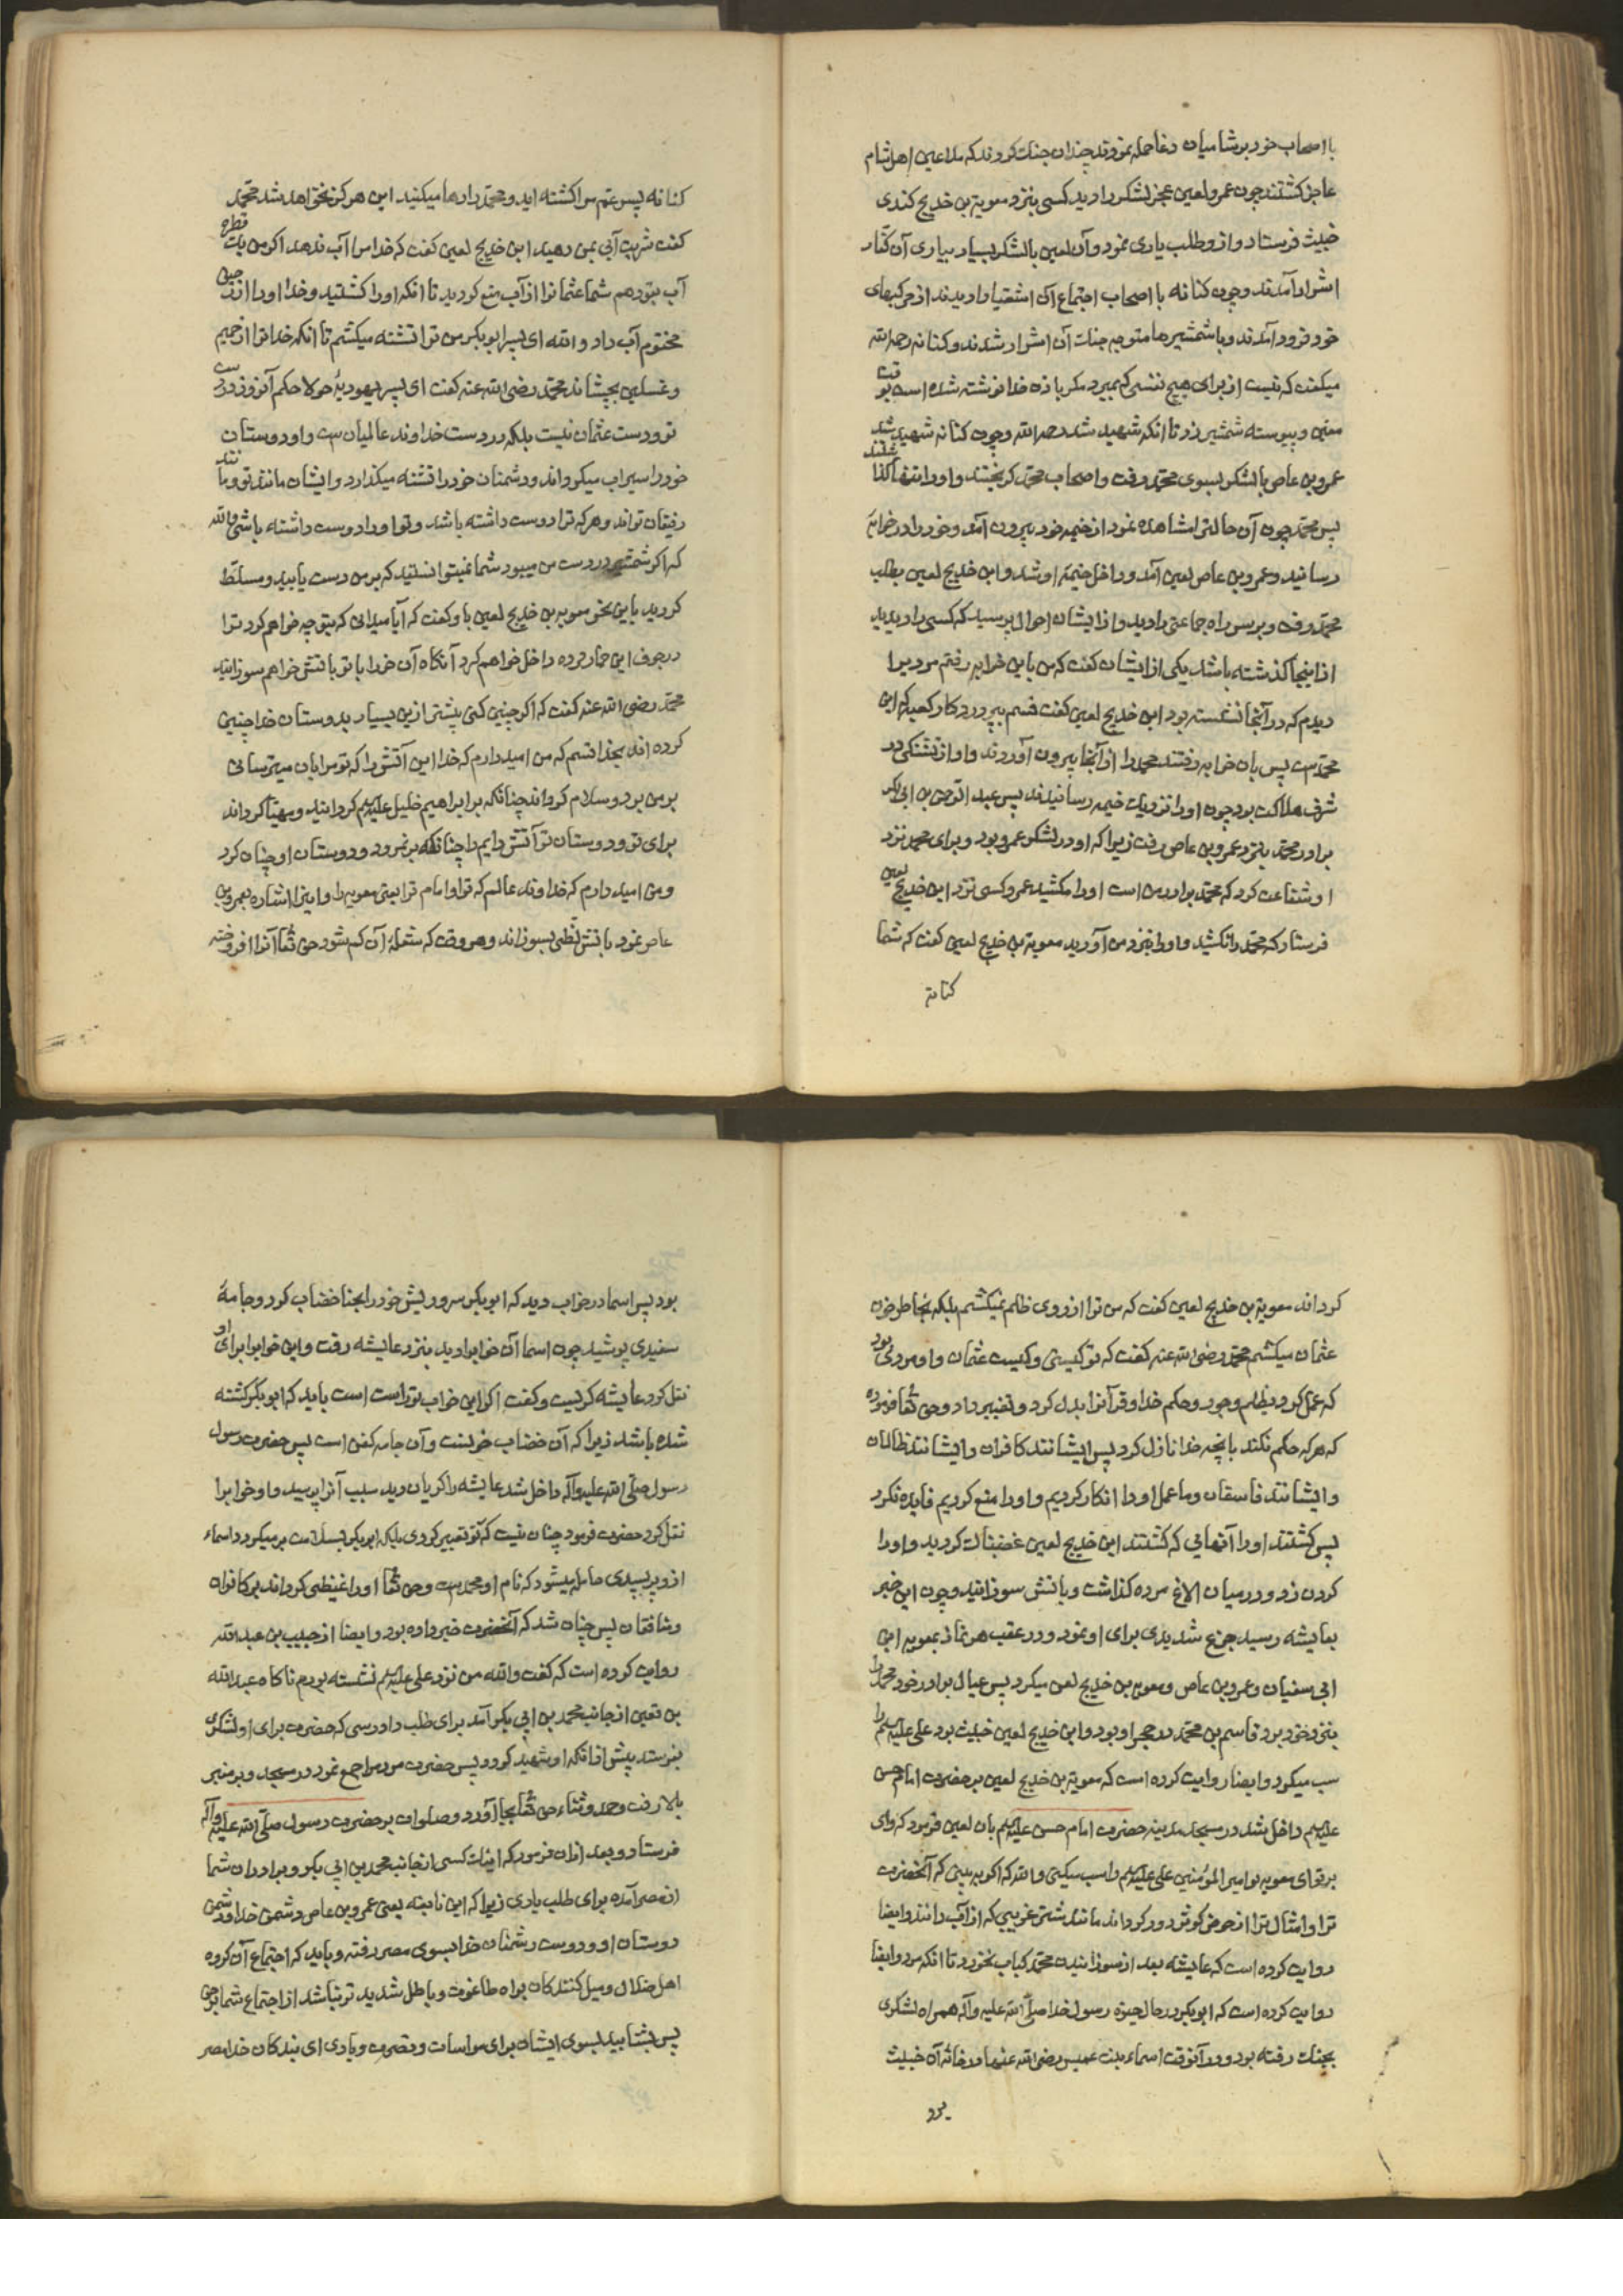 با اصحاب خود بر شامیان دغا حمله نمودند چندان جنک کردند که ملاعین اهل شام
عاجز کشتند چون عمرو لعین عجز لشکر را دید کسی بنزد معویة بن خدیج کندی
خبیث فرستاد و از و طلب یاری نمود و آن لعین با لشکر بسیار بیاری آن کفار
اشرار آمدند و چون کنانه با اصحاب اجتماع آن اشقیا را دیدند از مرکبهای
خود فرود آمدند و با شمشیرها متوجه جنک آن اشرار شدند و کنانه رحمه الله
میکفت که نیست از برای هیچ نفسی که بمیرد مکر باذن خدا نوشته شده است بوقت
معین و پیوسته شمشیر زد تا انکه شهید شد رحمه الله و چون کنانه شهید شد
عمرو بن عاص با لشکر بسوی محمد رفت و اصحاب محمد کریختند و او را تنها کذاشتند
پس محمد چون آن حالترا مشاهده نمود از خیمه خود بیرون آمد و خود را در خرابه
رسانید و عمرو بن عاص لعین آمد و داخل خیمه او شد و ابن خدیج لعین بطلب
محمد رفت و بر سر راه جماعتی را دید و از ایشان احوال پرسید که کسی را دیدید
از اینجا کذشته باشد یکی از ایشان کفت که من باین خرابه رفتم مردیرا
دیدم که در آنجا نشسته بود ابن خدیج لعین کفت قسم بپروردکار کعبه که این
محمد ست پس بان خرابه رفتند محمد را از آنجا بیرون آوردند و او از تشنکی در
شرف هلاکت بود چون او را نزدیک خیمه رسانیدند پس عبد الرحمن بن ابی بکر
برادر محمد بنزد عمرو بن عاص رفت زیرا که او در لشکر عمرو بود و برای محمد نزد
او شفاعت کرد که محمد برادر من است او را مکشید عمرو کسی نزد ابن خدیج لعین
فرستاد که محمد را نکشید و او را بنزد من آورید معویة بن خدیج لعین کفت که شما
کنانه
کنانه پسر عم مرا کشته اید و محمد را رها میکنید این هرکز نخواهد شد محمد
کفت شربت آبی بمن دهید ابن خدیج لعین کفت که خدا مرا آب ندهد اکر من یک قطره
آب بتو دهم شما عثمانرا از آب منع کردید تا انکه او را کشتید و خدا او را از رحیق
مختوم آب داد والله ای پسر ابو بکر من ترا تشنه میکشم تا انکه خدا ترا از حمیم
و غسلین بچشاند محمد رضی الله عنه کفت ای پسر یهودیهٔ جولا حکم آنروز در دست
تو و دست عثمان نیست بلکه در دست خداوند عالمیان ست و او دوستان
خود را سیراب میکرداند و دشمنان خود را تشنه میکذارد و ایشان مانند تو و
رفیقان تواند و هر که ترا دوست داشته باشد و تو او را دوست داشته باشی والله
که اکر شمشیر در دست من میبود شما نمیتوانستید که بر من دست یابید و مسلط
کردید باین نحو معویه بن خدیج لعین باو کفت که آیا میدانی که بتو چه خواهم کرد ترا
در جوف این حمار مرده داخل خواهم کرد آنکاه آن خر را با تو باتش خواهم سوزانید
محمد رضی الله عنه کفت که اکر چنین کنی پیشتر ازین بسیار بدوستان خدا چنین
کرده اند بخدا قسم که من امیدوارم که خدا این آتش را که تو مرا بان میترسانی
بر من برد و سلام کرداند چنانکه بر ابراهیم خلیل علیه السلم کردانید و مهیا کرداند
برای تو و دوستان تو آتش دایم را چنانکه بر نمرود و دوستان او چنان کرد
و من امید دارم که خداوند عالم که ترا و امام ترا یعنی معویه را و اینرا اشاره بعمرو بن
عاص نمود باتش لظی بسوزاند و هر وقت که شعلهٔ آن کم شود حق تعا آنرا افروخته
کرداند معویة بن خدیج لعین کفت که من ترا از روی ظلم نمیکشم بلکه بخاطر خون
عثمان میکشم محمد رضی الله عنه کفت که تو کیستی و کیست عثمان و او مردی بود
که عمل کرد بظلم و جور و حکم خدا و قرآنرا بدل کرد و تغییر داد و حق تعا فرموده
که هر که حکم نکند بانچه خدا نازل کرد پس ایشانند کافران و ایشانند ظالمان
و ایشانند فاسقان و ما عمل او را انکار کردیم و او را منع کردیم فایده نکرد
پس کشتند او را آنهائی که کشتند ابن خدیج لعین غضبناک کردید و او را
کردن زد و در میان الاغ مرده کذاشت و باتش سوزانید و چون این خبر
بعایشه رسید جزع شدیدی برای او نمود و در عقب هر نماز بمعویه ابن
ابی سفیان و عمرو بن عاص و معویه بن خدیج لعن میکرد پس عیال برادر خود محمد را
بنزد خود برد قاسم بن محمد در حجر او بود و ابن خدیج لعین خبیث بود علی علیه السلم را
سب میکرد و ایضا روایت کرده است که معویة بن خدیج لعین بر حضرت امام حسن
علیه السلم داخل شد در مسجد مدینه حضرت امام حسن علیه السلم بان لعین فرمود که وای
بر تو ای معویه تو امیر المؤمنین علی علیه السلم را سب میکنی والله که اکر به بینی که آنحضرت
ترا و امثال ترا از حوض کوثر دور کرداند مانند شتر غریبی که از آب رانند و ایضا
روایت کرده است که عایشه بعد از سوزانیدن محمد کباب نخورد تا انکه مرد و ایضا
روایت کرده است که ابو بکر در حال حیوة رسول خدا صلی الله علیه و آله همراه لشکری
بجنک رفته بود و در آنوقت اسماء بنت عمیس رضی الله عنها در خانه آن خبیث
بود
بود پس اسما در خواب دید که ابو بکر سر و ریش خود را بحنا خضاب کرد و جامهٔ
سفیدی پوشید چون اسما آن خوابرا دید بنزد عایشه رفت و این خوابرا برای او
نقل کرد عایشه کریست و کفت اکر این خواب تو راست است باید که ابو بکر کشته
شده باشد زیرا که آن خضاب خونست و آن جامه کفن است پس حضرت رسول
رسول صلی الله علیه وآله داخل شد عایشه را کریان دید سبب آنرا پرسید و او خوابرا
نقل کرد حضرت فرمود چنان نیست که تو تعبیر کردی بلکه ابو بکر بسلامت بر میکردد و اسماء
ازو بپسری حامله میشود که نام او محمد ست و حق تعا او را غیظی کرداند بر کافران
و منافقان پس چنان شد که آنحضرت خبر داده بود و ایضا از حبیب بن عبد الله
روایت کرده است که کفت والله من نزد علی علیه السلم نشسته بودم ناکاه عبد الله
بن قعین از جانب محمد بن ابی بکر آمد برای طلب دادرسی که حضرت برای او لشکری
بفرستد پیش از انکه او شهید کردد پس حضرت مردم را جمع نمود در مسجد و بر منبر
بالا رفت و حمد و ثناء حق تعا بجا آورد و صلوات بر حضرت رسول صلی الله علیه وآله
فرستاد و بعد ازان فرمود که اینک کسی از جانب محمد بن ابی بکر و برادران شما
از مصر آمده برای طلب یاری زیرا که این نابغه یعنی عمرو بن عاص دشمن خدا و دشمن
دوستان او و دوست دشمنان خدا بسوی مصر رفته و باید که اجتماع آن کروه
اهل ضلال و میل کنندکان براه طاغوت و باطل شدید تر نباشد از اجتماع شما بر حق
پس بشتابید بسوی ایشان برای مواسات و نصرت و یاری ای بندکان خدا مصر